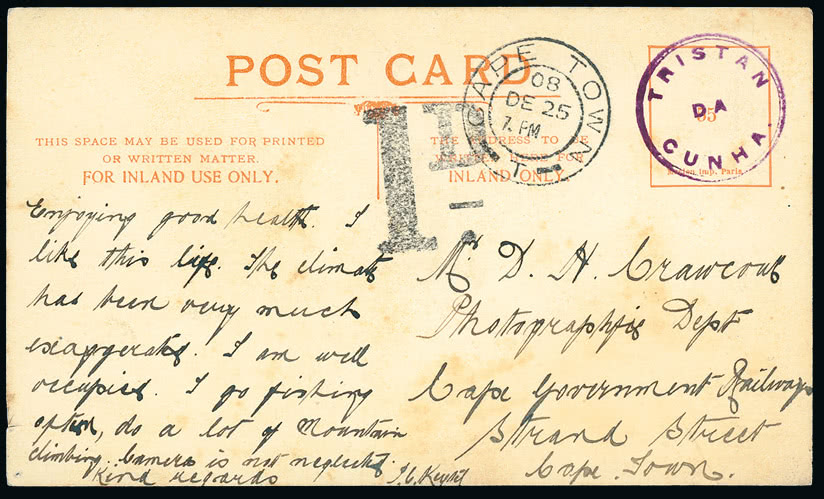 POST CARD
THIS SPACE MAY BE USED FOR PRINTED
OR WRITTEN MATTER.
FOR INLAND USE ONLY.
THE ADDRESS TO BE
FOR
INLAND ONLY
CAPE TOWN
08
DE 25
7. PM
T
1D
TRISTAN
DA
CUNHA.
Imp. Paris
Enjoying good health. I
like this life. The climate
has been very much
exaggerated. I am well
occupied. I go fishing
often, do a lot of Mountain
climbing. Camera is not neglected.
Kind regards
Mr D. H.
Photographic Dept
Cape Government Railways
Strand Street
Cape Town.